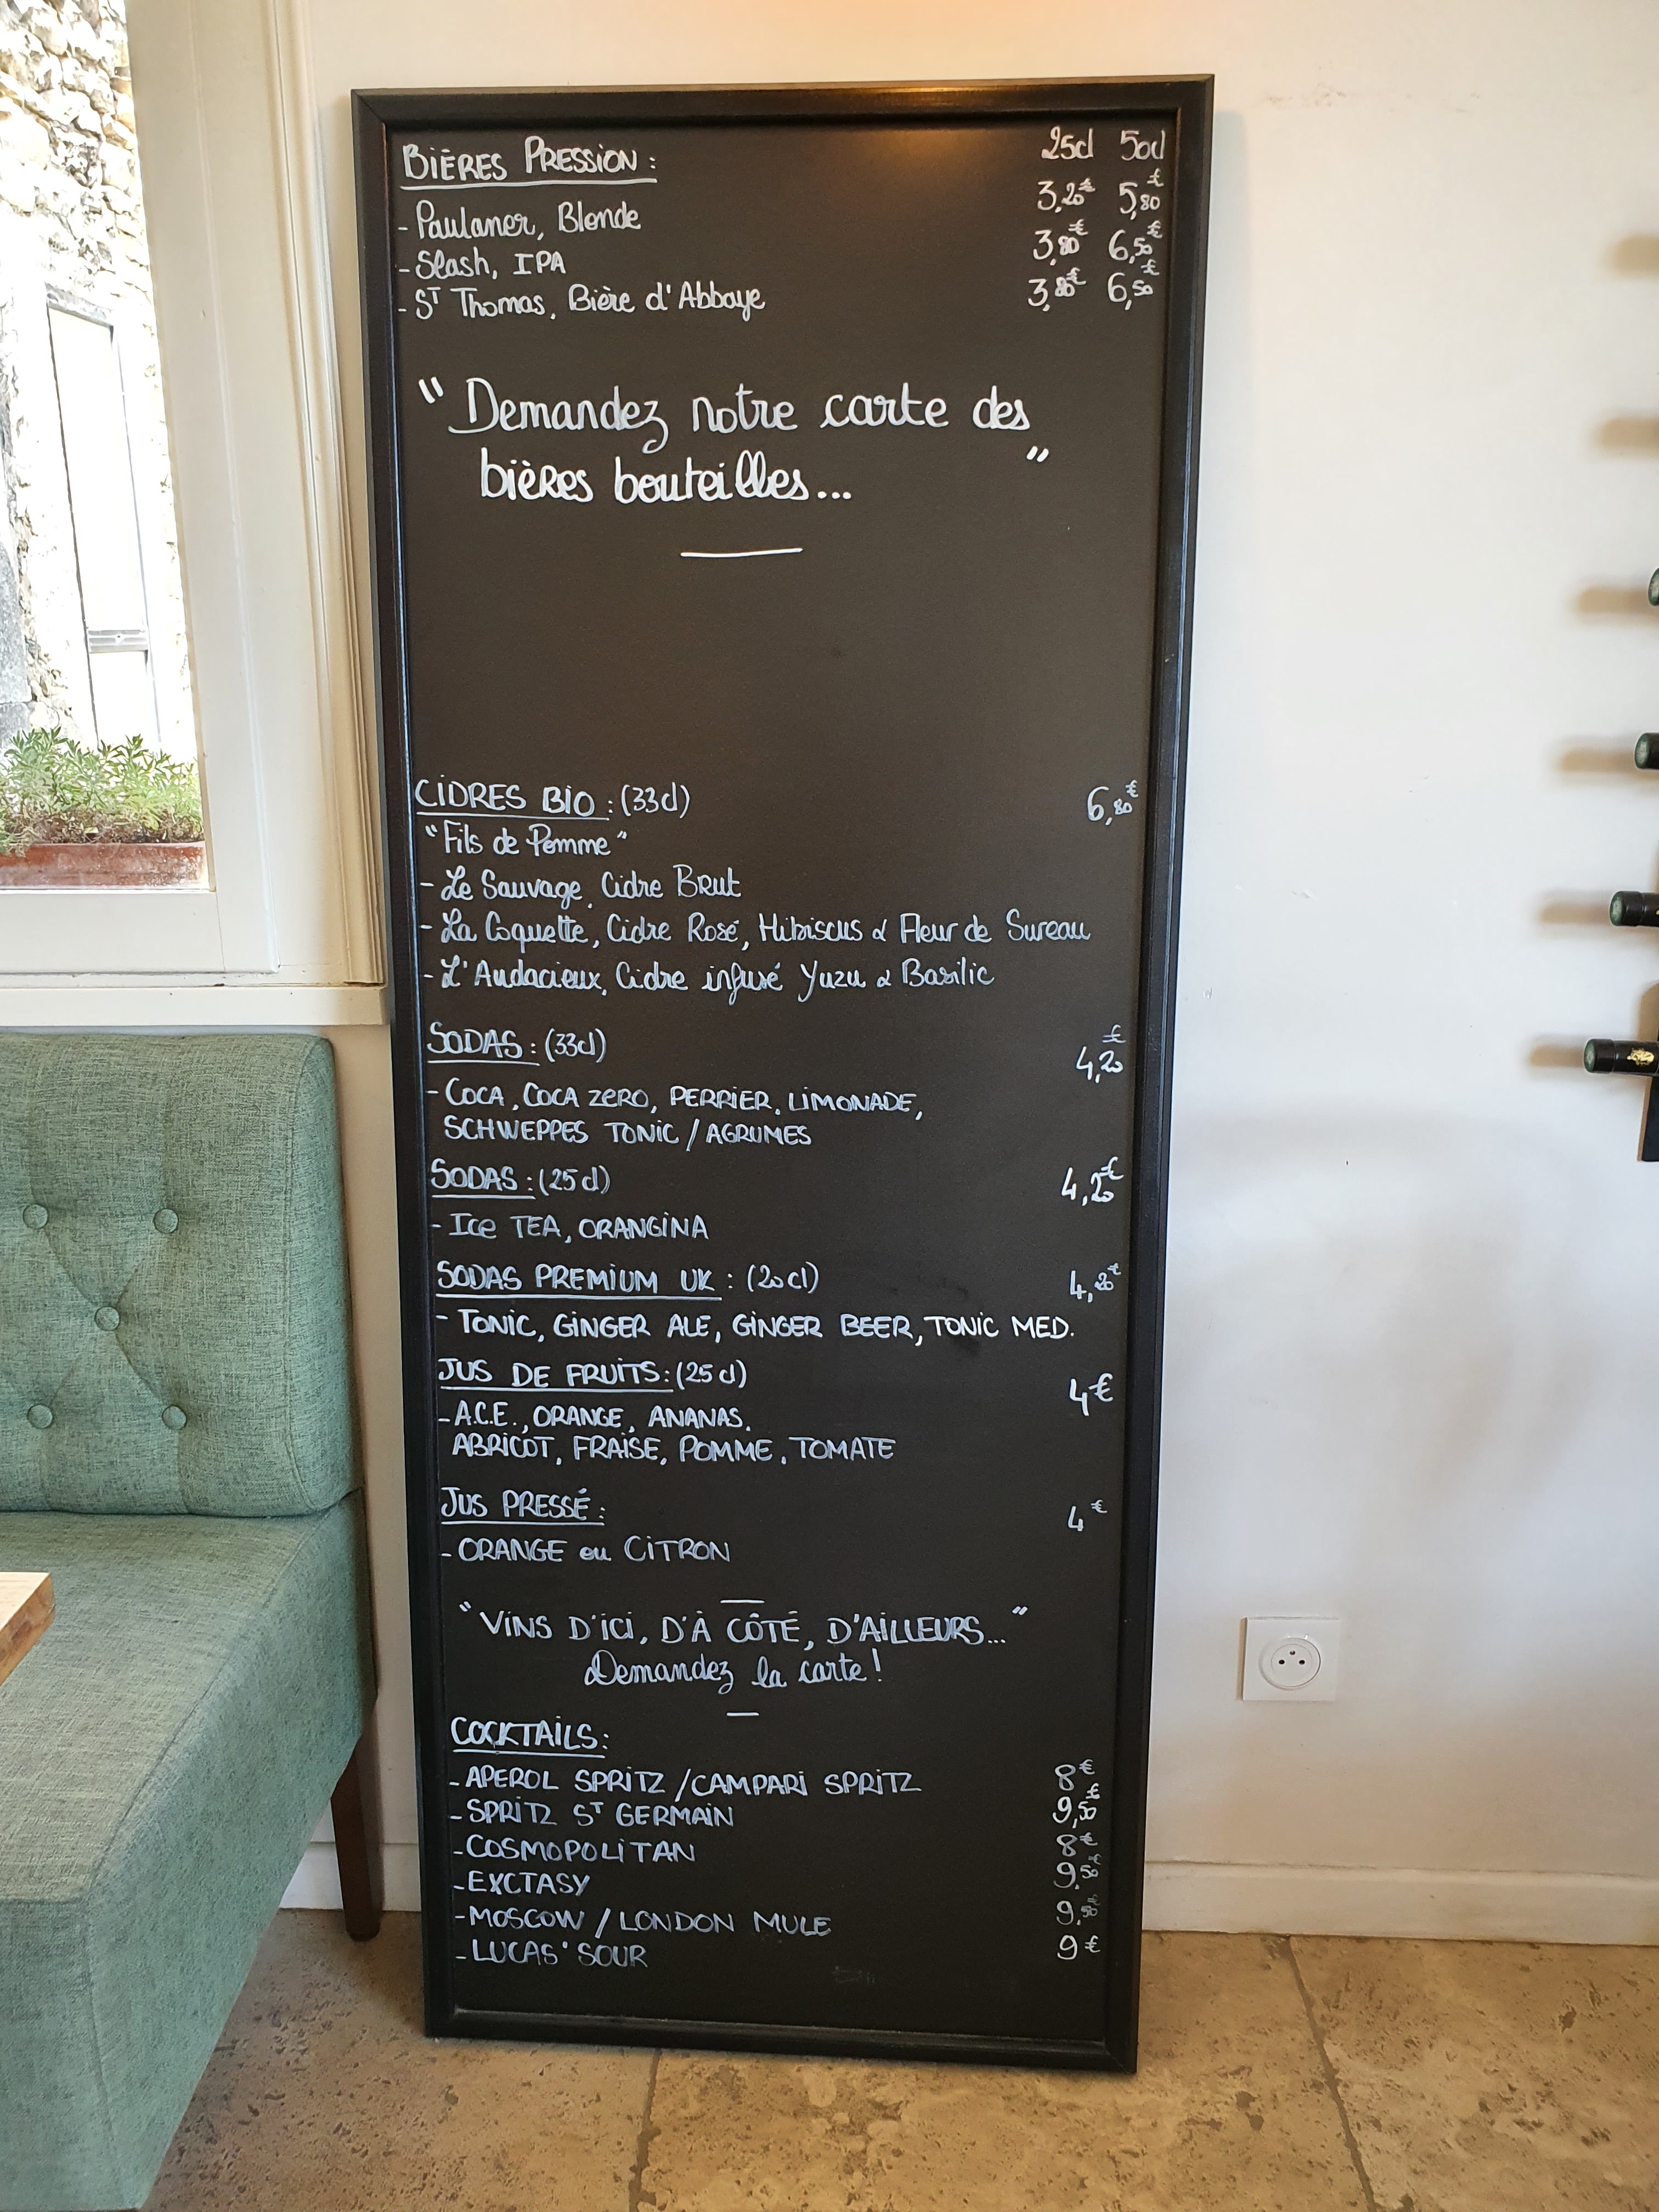 BIÈRES PRESSION : 25cl 50cl
- Paulaner, Blonde 3,20€ 5,80€
- Slash, IPA 3,80€ 6,50€
- ST Thomas, Bière d'Abbaye 3,80€ 6,50€
"Demandez notre carte des
bières bouteilles..."
CIDRES BIO : (33cl) 6,80€
"Fils de Pomme"
- Le Sauvage, Cidre Brut
- La Coquette, Cidre Rosé, Hibiscus & Fleur de Sureau
- L'Audacieux, Cidre infusé Yuzu & Basilic
SODAS : (33cl) 4,20€
- COCA, COCA ZERO, PERRIER, LIMONADE,
SCHWEPPES TONIC / AGRUMES
SODAS : (25cl) 4,20€
- Ice TEA, ORANGINA
SODAS PREMIUM UK : (20cl) 4,20€
- TONIC, GINGER ALE, GINGER BEER, TONIC MED.
JUS DE FRUITS : (25cl) 4€
- A.C.E., ORANGE, ANANAS,
ABRICOT, FRAISE, POMME, TOMATE
JUS PRESSÉ : 4€
- ORANGE ou CITRON
"VINS D'ICI, D'À CÔTÉ, D'AILLEURS..."
Demandez la carte !
COCKTAILS :
- APEROL SPRITZ / CAMPARI SPRITZ 8€
- SPRITZ ST GERMAIN 9,50€
- COSMOPOLITAN 8€
- EXCTASY 9,50€
- MOSCOW / LONDON MULE 9,50€
- LUCAS' SOUR 9€